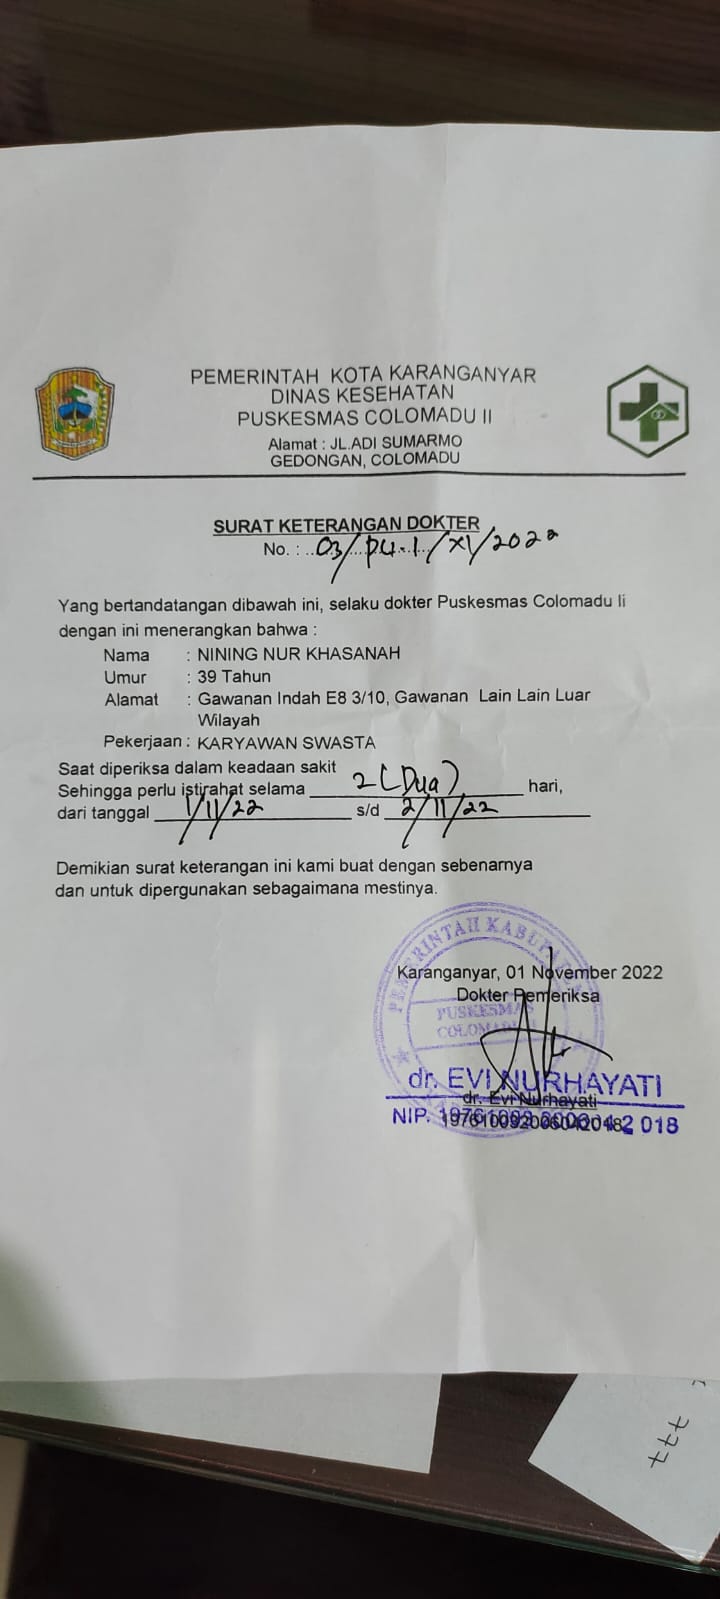 PEMERINTAH KOTA KARANGANYAR
DINAS KESEHATAN
PUSKESMAS COLOMADU II
Alamat : JL.ADI SUMARMO
GEDONGAN, COLOMADU
SURAT KETERANGAN DOKTER
No. : 03/P4.1/XI/2022
Yang bertandatangan dibawah ini, selaku dokter Puskesmas Colomadu Ii
dengan ini menerangkan bahwa :
Nama : NINING NUR KHASANAH
Umur : 39 Tahun
Alamat : Gawanan Indah E8 3/10, Gawanan Lain Lain Luar
Wilayah
Pekerjaan : KARYAWAN SWASTA
Saat diperiksa dalam keadaan sakit
Sehingga perlu istirahat selama 2 (Dua) hari,
dari tanggal 1/11/22 s/d 2/11/22
Demikian surat keterangan ini kami buat dengan sebenarnya
dan untuk dipergunakan sebagaimana mestinya.
PEMERINTAH KABUPATEN
Karanganyar, 01 November 2022
Dokter Pemeriksa
PUSKESMAS
COLOMADU
dr. EVI NURHAYATI
dr. Evi Nurhayati
NIP.